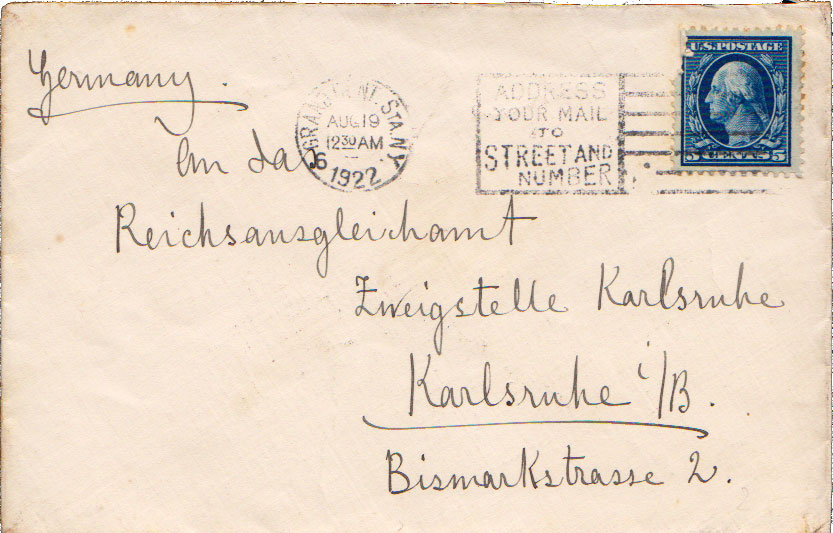 Germany.
An das
Reichsausgleichamt
Zweigstelle Karlsruhe
Karlsruhe i/B.
Bismarkstrasse 2.
GRAND CENT. STA. N.Y.
AUG 19
12 30 AM
6
1922
ADDRESS
YOUR MAIL
TO
STREET AND
NUMBER
U.S. POSTAGE
5 CENTS 5